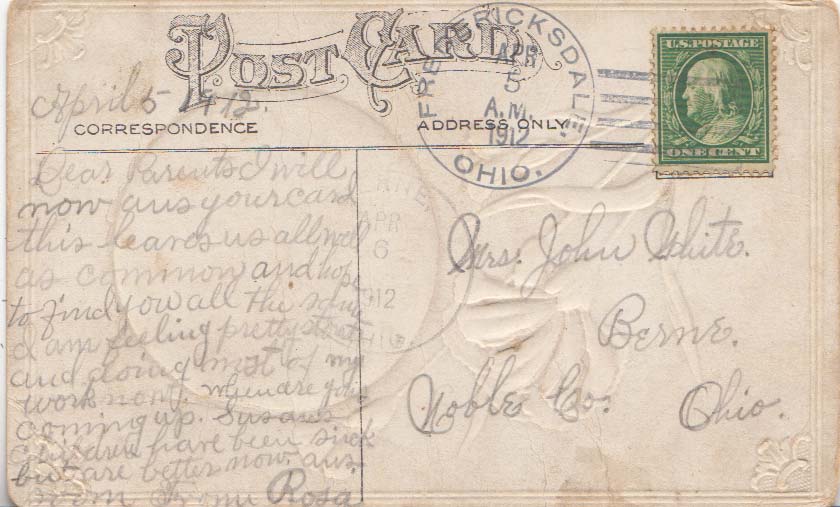 POST CARD
FREDERICKSDALE
APR
5
A.M.
1912
OHIO.
U.S. POSTAGE
ONE CENT
April 5 1912.
CORRESPONDENCE
ADDRESS ONLY
Dear Parents I will
now ans your card
this leaves us all well
as common and hope
to find you all the same
I am feeling pretty stout
and doing most of my
work now. when are you
coming up. Susans
children have been sick
but are better now. ans
soon From Rosa
BERNE,
APR
6
1912
OHIO
Mrs. John White.
Berne.
Noble Co. Ohio.